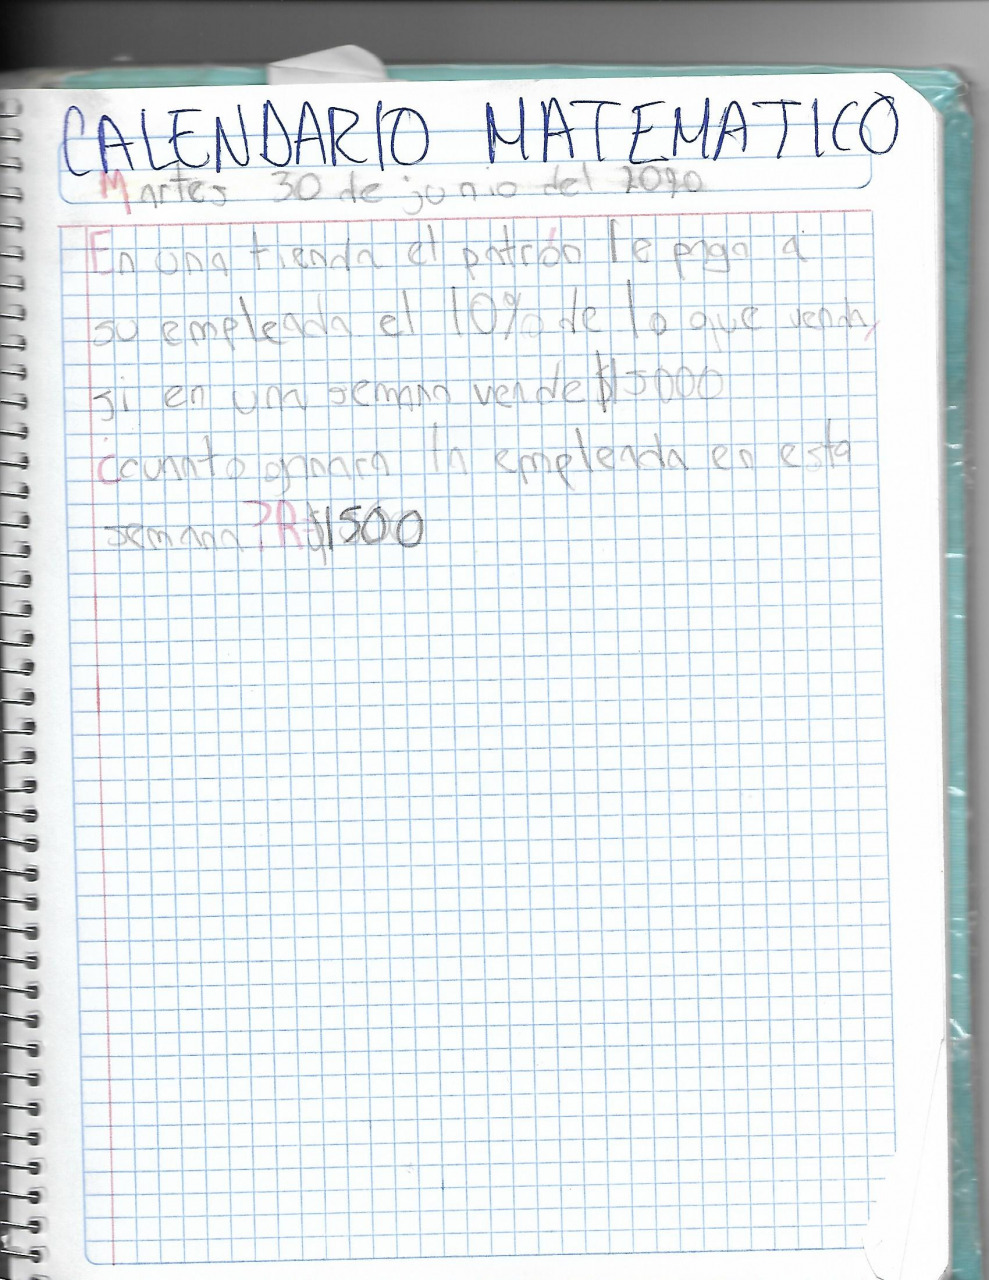 CALENDARIO MATEMATICO
Martes 30 de junio del 2020
En una tienda el patrón le paga a
su empleada el 10% de lo que venda,
si en una semana vende $15000
¿cuanto ganara la empleada en esta
semana? R $1500